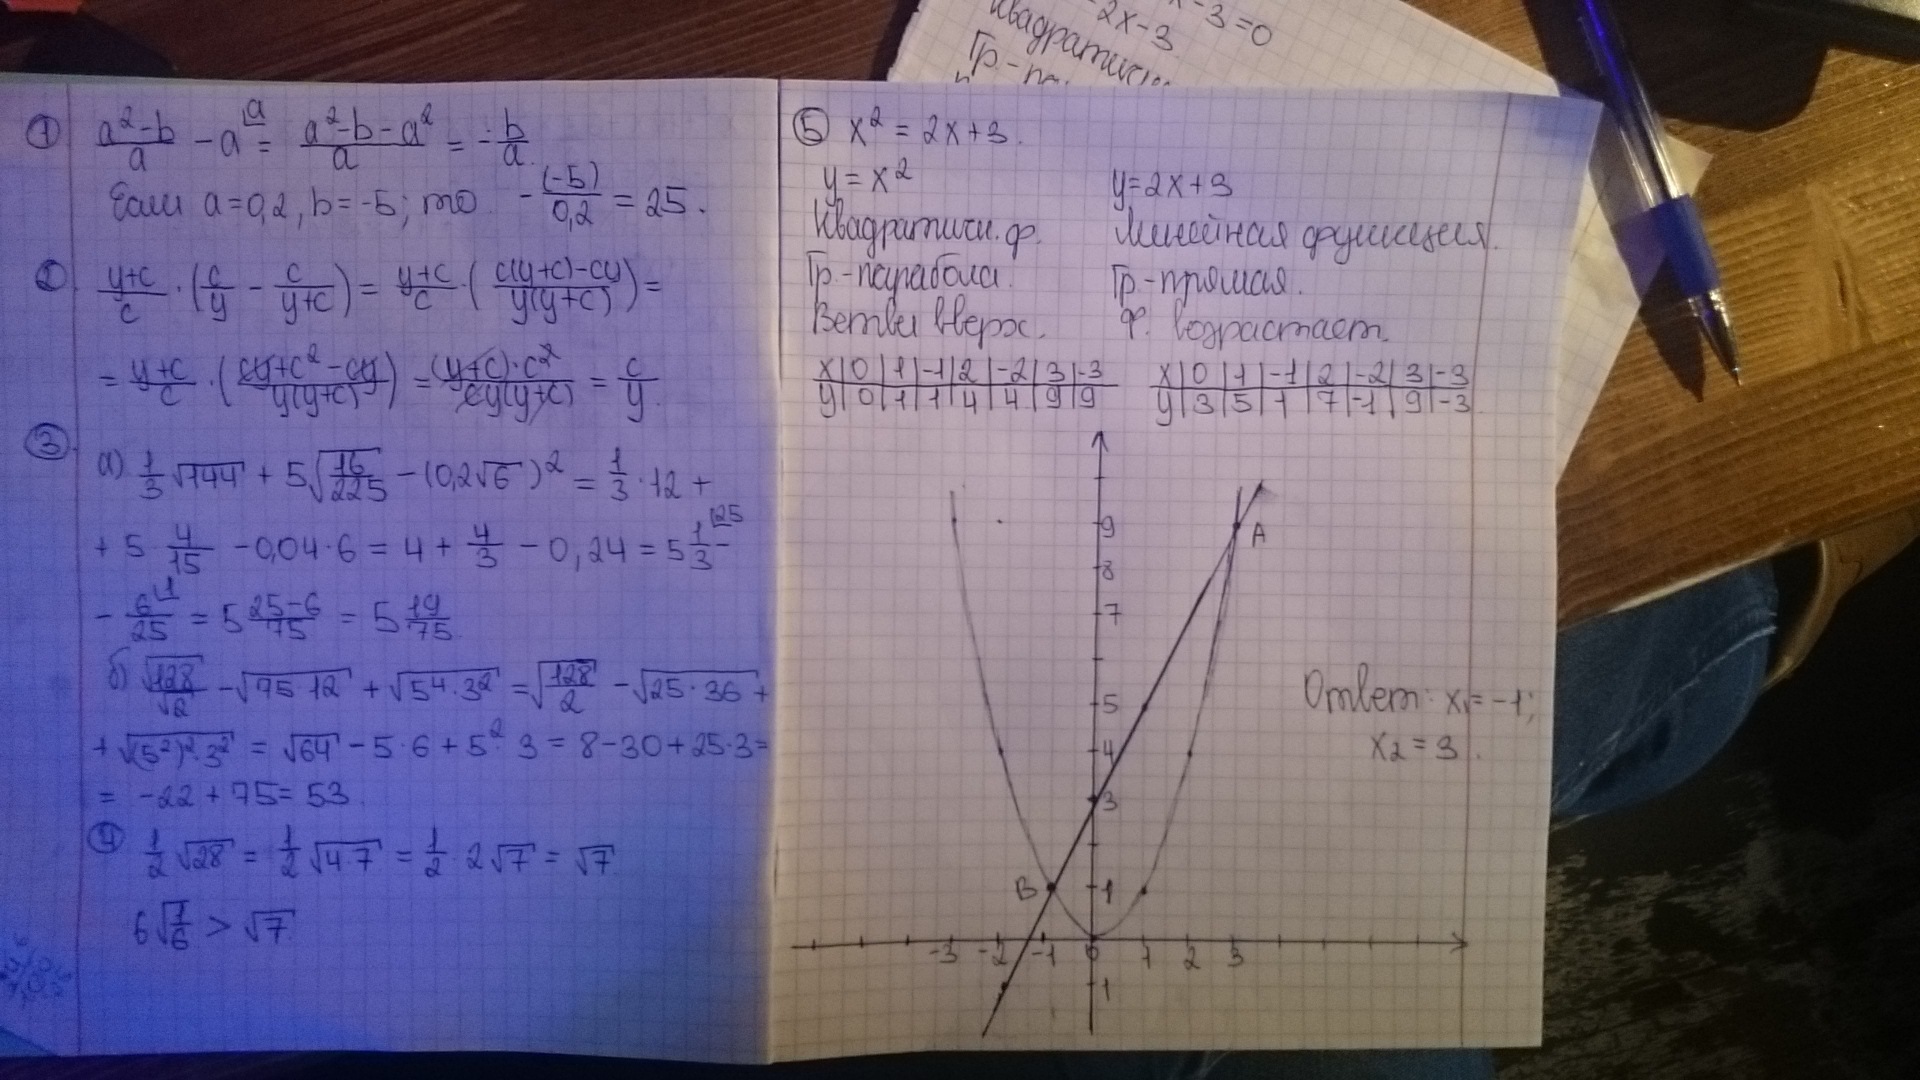 ① (a²-b)/a - a = (a²-b-a²)/a = -b/a.
Если a=0,2, b=-5; то -(-5)/0,2 = 25.
② (y+c)/c · (c/y - c/(y+c)) = (y+c)/c · ((c(y+c)-cy)/(y(y+c))) =
= (y+c)/c · ((cy+c²-cy)/(y(y+c))) = ((y+c)·c²)/(cy(y+c)) = c/y.
③
а) 1/3 √144 + 5√(16/225) - (0,2√6)² = 1/3 · 12 +
+ 5 · 4/15 - 0,04·6 = 4 + 4/3 - 0,24 = 5 1/3 -
- 6/25 = 5 (25-6)/75 = 5 19/75.
б) √128/√2 - √(75·12) + √(5⁴·3²) = √(128/2) - √(25·36) +
+ √((5²)²·3²) = √64 - 5·6 + 5²·3 = 8-30+25·3=
= -22+75=53.
④ 1/2 √28 = 1/2 √(4·7) = 1/2 · 2√7 = √7.
6√(7/6) > √7.
⑤ x² = 2x+3.
y = x²
Квадратичн. ф.
Гр.-парабола.
Ветви вверх.
x|0|1|-1|2|-2|3|-3
y|0|1|1|4|4|9|9
y=2x+3
Линейная функция.
Гр.-прямая.
Ф. возрастает.
x|0|1|-1|2|-2|3|-3
y|3|5|1|7|-1|9|-3
9
A
8
7
5
4
3
B 1
-3 -2 -1 0 1 2 3
1
Ответ: x₁=-1;
x₂=3.
-3=0
-2x-3
Квадратичн
Гр.-па